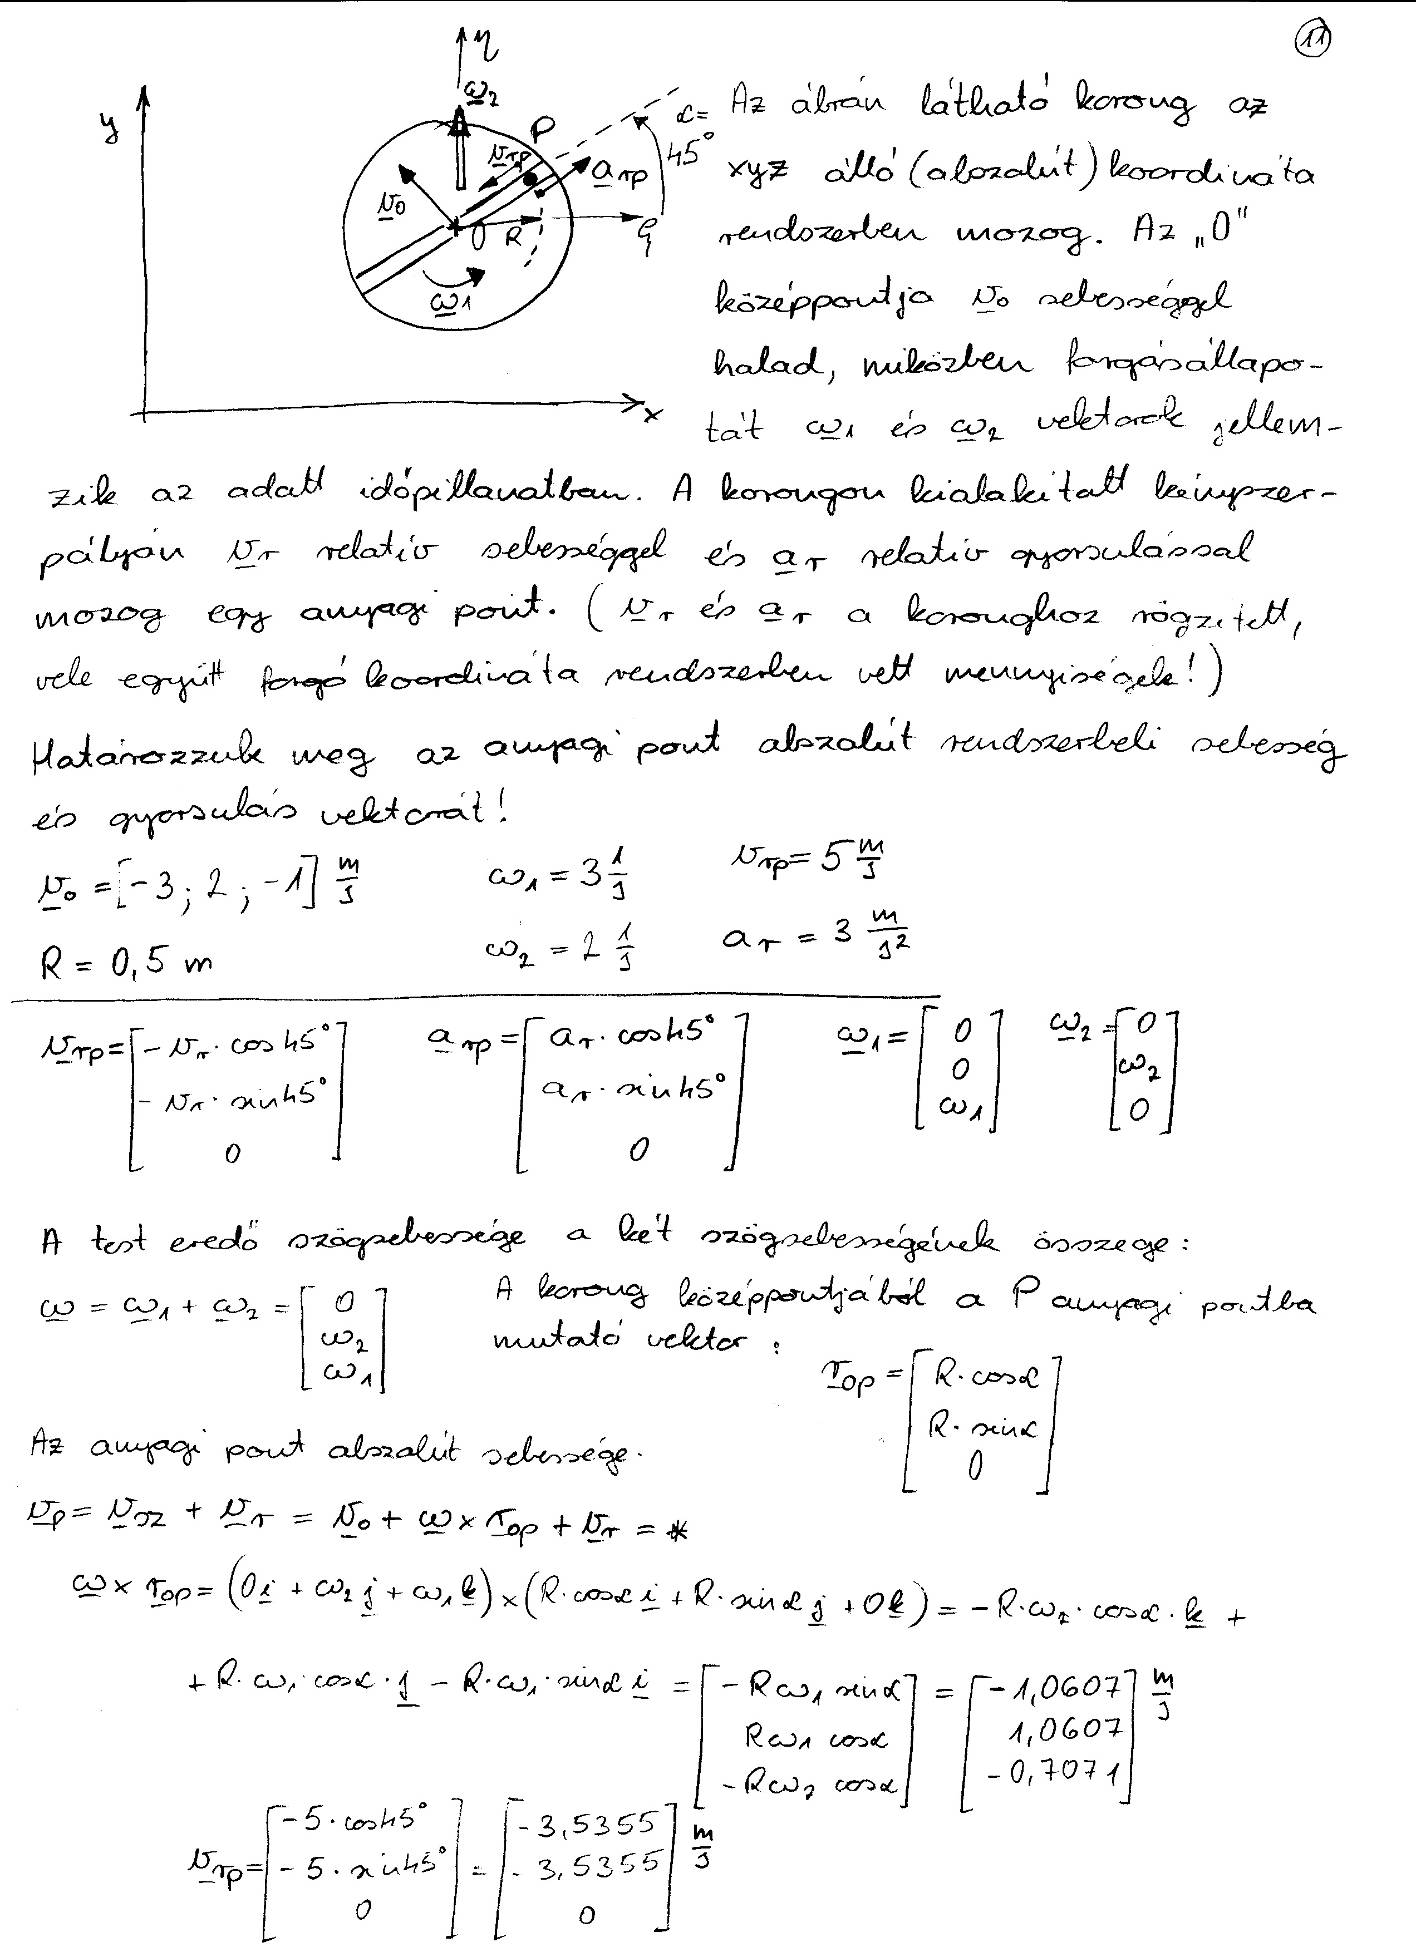 11
η
ω₂
y
P
v_rp
a_rp
α=
45°
v₀
0
R
ξ
ω₁
x
Az ábrán látható korong az
xyz álló (abszolút) koordináta
rendszerben mozog. Az „0"
középpontja v₀ sebességgel
halad, miközben forgásállapo-
tát ω₁ és ω₂ vektorok jellem-
zik az adott időpillanatban. A korongon kialakított kényszer-
pályán v_r relatív sebességgel és a_r relatív gyorsulással
mozog egy anyagi pont. (v_r és a_r a koronghoz rögzített,
vele együtt forgó koordináta rendszerben vett mennyiségek!)
Határozzuk meg az anyagi pont abszolút rendszerbeli sebesség
és gyorsulás vektorát!
v₀ = [-3; 2; -1] m/s ω₁ = 3 1/s v_rp = 5 m/s
R = 0,5 m ω₂ = 2 1/s a_r = 3 m/s²
v_rp = [-v_r·cos45° -v_r·sin45° 0] a_rp = [a_r·cos45° a_r·sin45° 0] ω₁ = [0 0 ω₁] ω₂ = [0 ω₂ 0]
A test eredő szögsebessége a két szögsebességének összege:
ω = ω₁ + ω₂ = [0 ω₂ ω₁]
A korong középpontjából a P anyagi pontba
mutató vektor:
r_op = [R·cosα R·sinα 0]
Az anyagi pont abszolút sebessége.
v_p = v_sz + v_r = v₀ + ω × r_op + v_r = *
ω × r_op = (0i + ω₂j + ω₁k) × (R·cosα i + R·sinα j + 0k) = -R·ω₂·cosα·k +
+ R·ω₁·cosα·j - R·ω₁·sinα i = [-Rω₁ sinα Rω₁ cosα -Rω₂ cosα] = [-1,0607 1,0607 -0,7071] m/s
v_rp = [-5·cos45° -5·sin45° 0] = [-3,5355 -3,5355 0] m/s